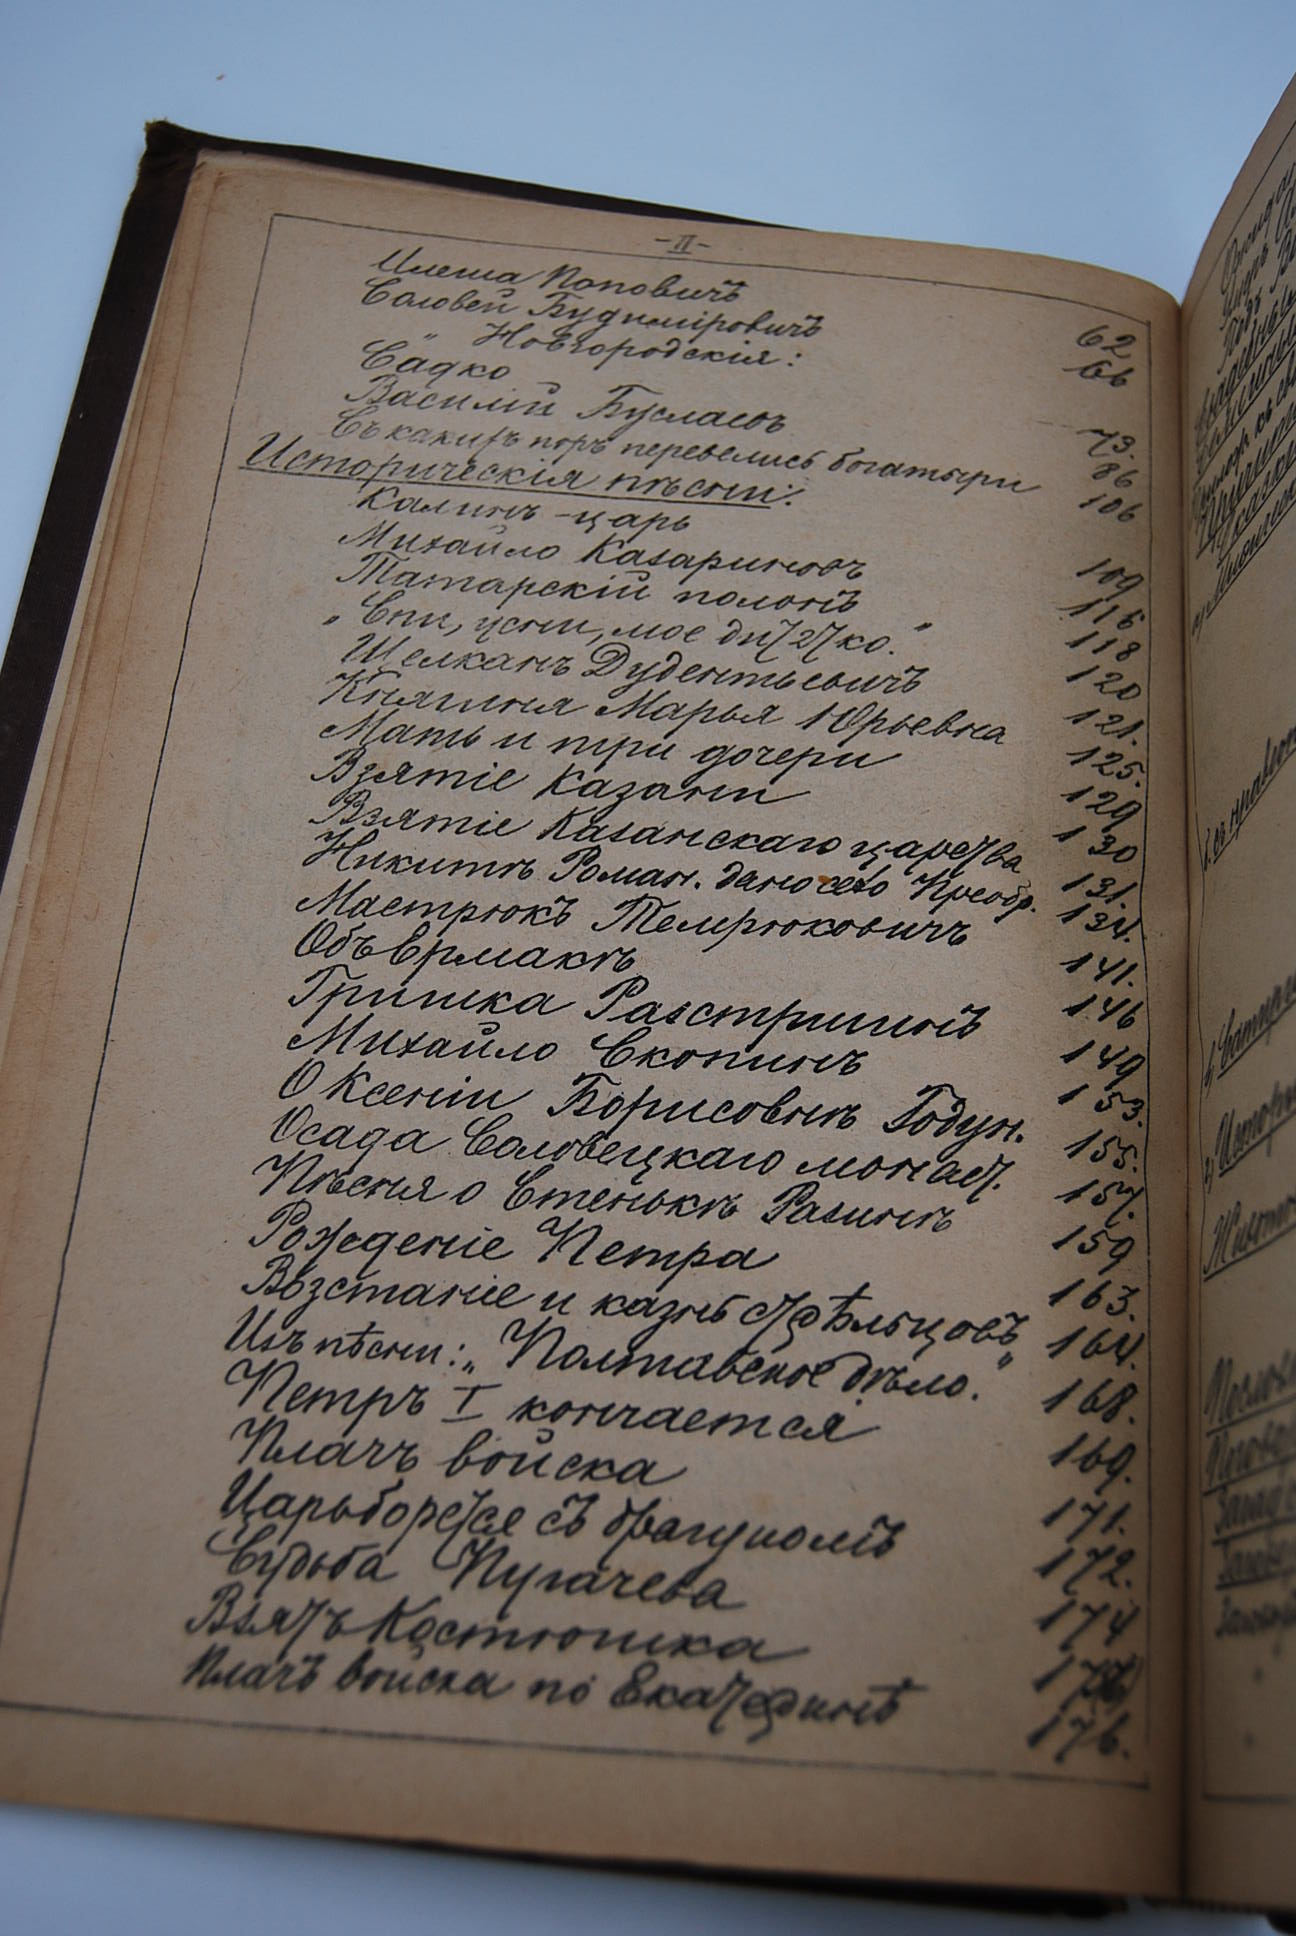 -II-
Илеша Поповичъ 62
Соловей Будиміровичъ 66
" Новгородскія:
Садко 73.
Василій Буслаевъ 86
Съ какихъ поръ перевелись богатыри 106
Историческія пѣсни:
Калинъ-царь 109
Михайло Казариновъ 116
Татарскій полонъ 118
„Спи, усни, мое дитятко." 120
Щелканъ Дудентьевичъ 121.
Княгиня Марья Юрьевна 125.
Мать и три дочери 129
Взятіе Казани 130
Взятіе Казанскаго царства 131.
Никитѣ Роман. дано село Преобр. 134.
Мастрюкъ Темрюковичъ 141.
Объ Ермакѣ 146
Гришка Разстришнъ 149
Михайло Скопинъ 153.
О Ксеніи Борисовнѣ Годун. 155.
Осада Соловецкаго монаст. 157.
Пѣсня о Стенькѣ Разинѣ 159
Рожденіе Петра 163.
Возстаніе и казнь стрѣльцовъ 164.
Изъ пѣсни: „Полтавское дѣло." 168.
Петръ I кончается 169.
Плачъ войска 171.
Царь борется съ драгуномъ 172.
Судьба Пугачева 174
Взятъ Костюшка
Плачъ войска по Екатеринѣ 176.